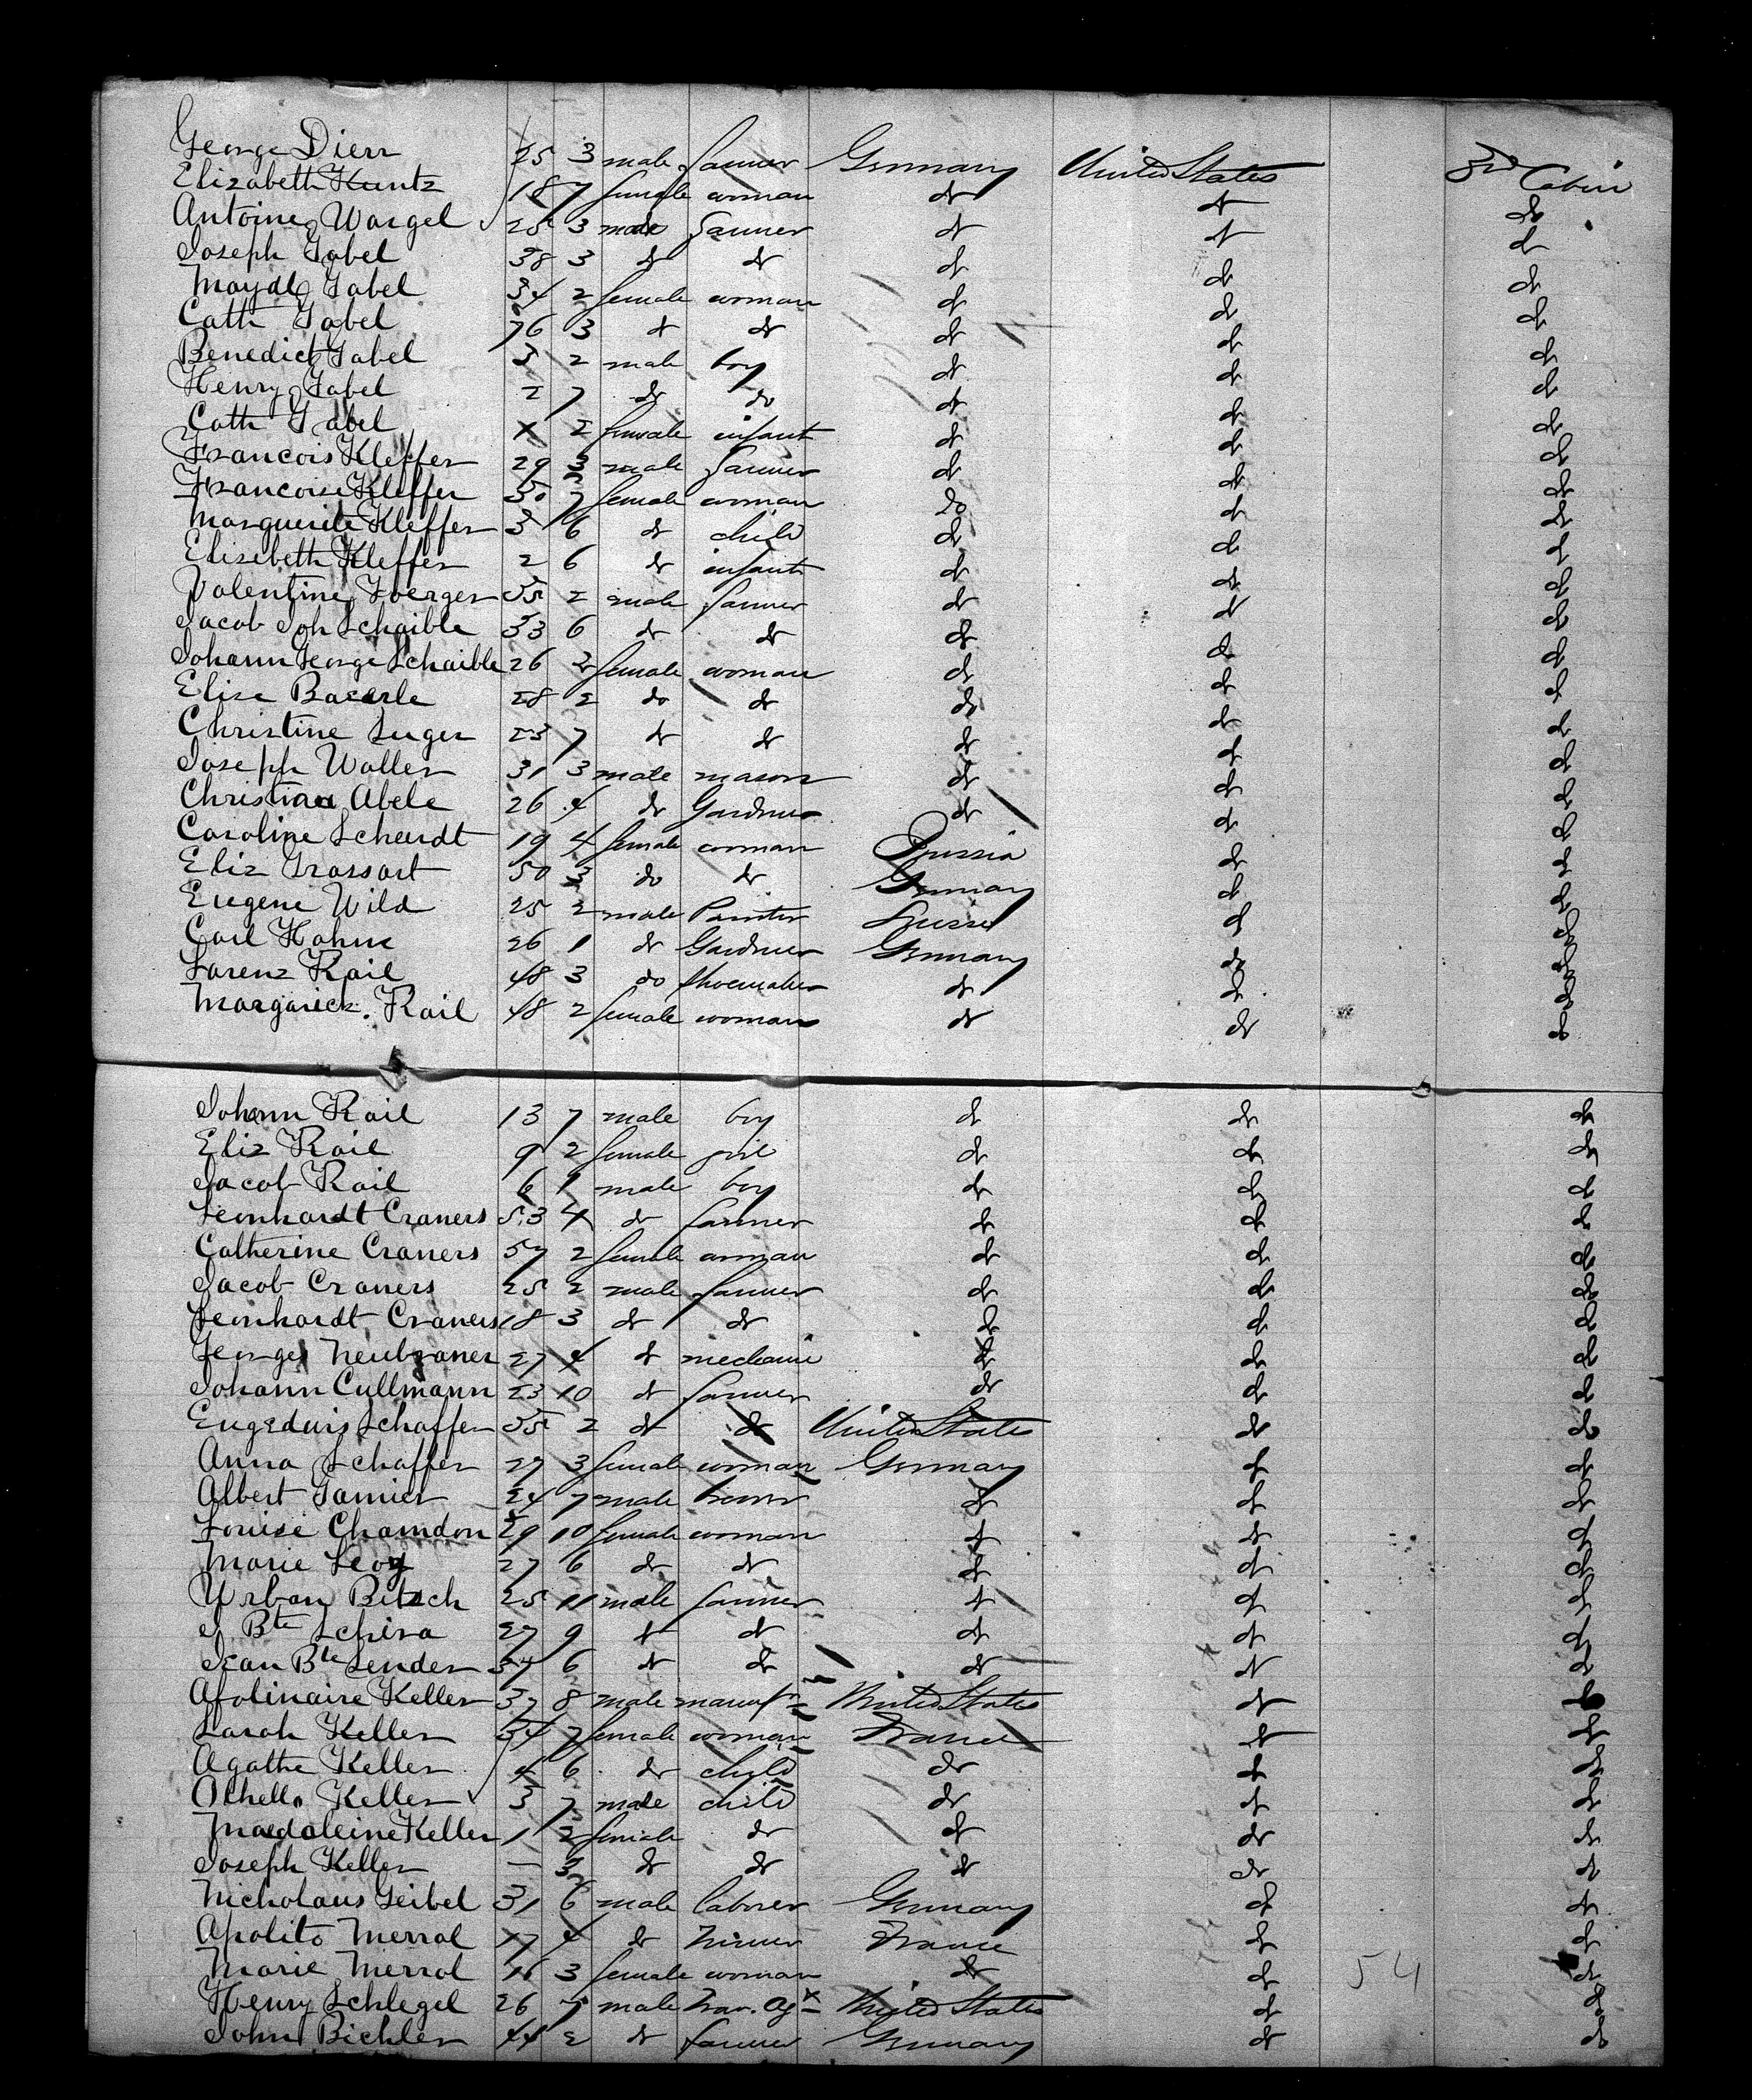 George Dierr 25 3 male farmer Germany United States 3rd Cabin
Elizabeth Kuntz 18 7 female woman do do do
Antoine Wargel 25 3 male farmer do do do
Joseph Gabel 38 3 do do do do do
Maydle Gabel 34 2 female woman do do do
Cath Gabel 76 3 do do do do do
Benedict Gabel 3 2 male boy do do do
Henry Gabel 2 7 do do do do do
Cath Gabel 1 2 female infant do do do
Francois Kleffer 29 3 male farmer do do do
Francoise Kleffer 30 7 female woman do do do
Marguerite Kleffer 3 6 do child do do do
Elisebeth Kleffer 2 6 do infant do do do
Valentine Iberger 55 2 male farmer do do do
Jacob Joh Schaible 33 6 do do do do do
Johann George Schaible 26 2 female woman do do do
Elise Bacerle 28 2 do do do do do
Christine Luger 23 7 do do do do do
Joseph Waller 31 3 male mason do do do
Christian Abele 26 4 do Gardner do do do
Caroline Scheurdt 19 4 female woman Prussia do do
Eliz Grassart 50 3 do do Germany do do
Eugene Wild 25 2 male Painter do do
Carl Hahne 26 1 do Gardner Germany do do
Lorenz Rail 48 3 do Shoemaker do do do
Margarick. Rail 48 2 female woman do do do
Johann Rail 13 7 male boy do do do
Eliz Rail 9 2 female girl do do do
Jacob Rail 6 1 male boy do do do
Leonhardt Craners 53 4 do farmer do do do
Catherine Craners 57 2 female woman do do do
Jacob Craners 25 2 male farmer do do do
Leonhardt Craners 18 3 do do do do do
Georges Neubraner 27 4 do mechanic do do do
Johann Cullmann 23 10 do farmer do do do
Schaffer 35 2 do do United States do do
Anna Schaffer 27 3 female woman Germany do do
Albert Garnier 24 7 male do do do
Louise Chamdon 29 10 female woman do do do
Marie Levy 27 6 do do do do do
Urban Bitzch 25 11 male farmer do do do
J. Bte Schira 27 9 do do do do do
Jean Bte Sender 37 6 do do do do do
Apolinaire Keller 37 8 male manufr United States do do
Sarah Keller 34 7 female woman France do do
Agathe Keller 4 6 do child do do do
Othello Keller 3 7 male child do do do
Maedaleine Keller 1 2 female do do do do
Joseph Keller — 3 do do do do do
Nicholaus Geibel 31 6 male laborer Germany do do
Apolito Merral 17 4 do Miner France do do
Marie Merral 16 3 female woman do do 54 do
Henry Schlegel 26 7 male Trav. Agt United States do do
John Bichler 44 2 do farmer Germany do do